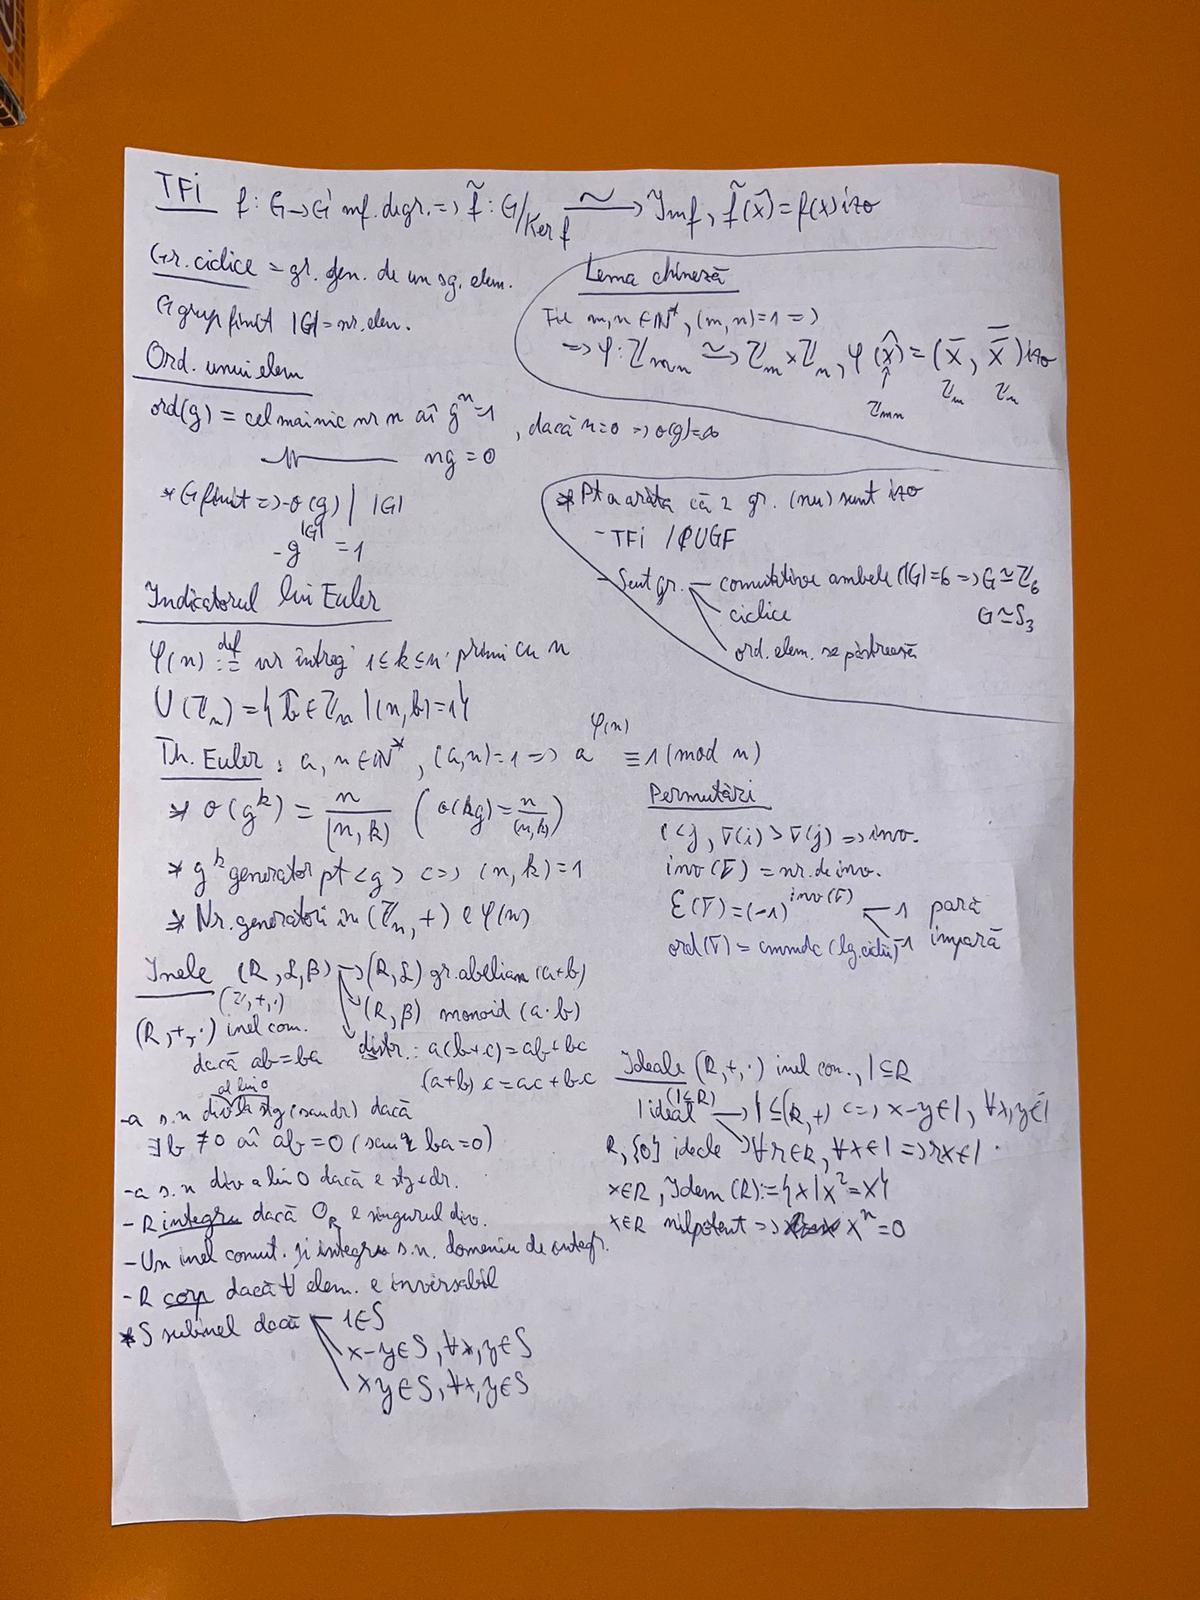 TFi f: G→G' mf. de gr. => f̃ : G/Ker f ~→ Imf, f̃(x̄) = f(x) izo
Gr. ciclice = gr. gen. de un sg. elem.
G grup finit |G| = nr. elem.
Ord. unui elem
ord(g) = cel mai mic nr n aî g^n = 1
ng = 0
, dacă n=0 => o(g)=∞
* G finit => - o(g) | |G|
- g^|G| = 1
Lema chineză
Fie m,n ∈ ℕ*, (m,n)=1 =>
=> φ : ℤmn ≃→ ℤm × ℤn, φ(x̂) = (x̄, x̿) izo
↑
ℤmn ℤm ℤn
* Pt a arăta că 2 gr. (nu) sunt izo
- TFi / PUGF
- Sunt gr. — comutative ambele (|G|=6 => G≃ℤ6
ciclice G≃S3
ord. elem. se păstrează
Indicatorul lui Euler
φ(n) :=def nr întregi 1≤k≤n primi cu n
U(ℤn) = {k̄ ∈ ℤn | (n,k)=1}
Th. Euler : a, n ∈ ℕ*, (a,n)=1 => a^φ(n) ≡ 1 (mod n)
* o(g^k) = n/(n,k) (o(kg) = n/(n,k))
* g^k generator pt <g> <=> (n,k)=1
* Nr. generatori în (ℤn,+) e φ(n)
Permutări
i<j, σ(i) > σ(j) => inv.
inv(σ) = nr. de inv.
ε(σ) = (-1)^inv(σ) — 1 pară
-1 impară
ord(σ) = cmmdc (lg. cicli)
Inele (R, α, β) → (R, α) gr. abelian (a+b)
(ℤ,+,·) (R, β) monoid (a·b)
(R,+,·) inel com. distr. : a(b+c) = ab+bc
dacă ab = ba (a+b)c = ac+b.c
al lui 0
- a s.n div la stg (sau dr) dacă
∃b ≠ 0 aî ab = 0 (sau ba = 0)
- a s.n div a lui 0 dacă e stg+dr.
- R integru dacă 0R e singurul div.
- Un inel comut. și integru s.n. domeniu de integr.
- R corp dacă ∀ elem. e inversabil
* S subinel dacă — 1∈S
x-y∈S, ∀x,y∈S
xy∈S, ∀x,y∈S
Ideale (R,+,·) inel com., I⊆R
(I≤R)
I ideal → I ≤ (R,+) <=> x-y∈I, ∀x,y∈I
R, {0} ideale → ∀r∈R, ∀x∈I => rx∈I.
x∈R, Idem(R) := {x | x² = x}
x∈R nilpotent => x^n = 0